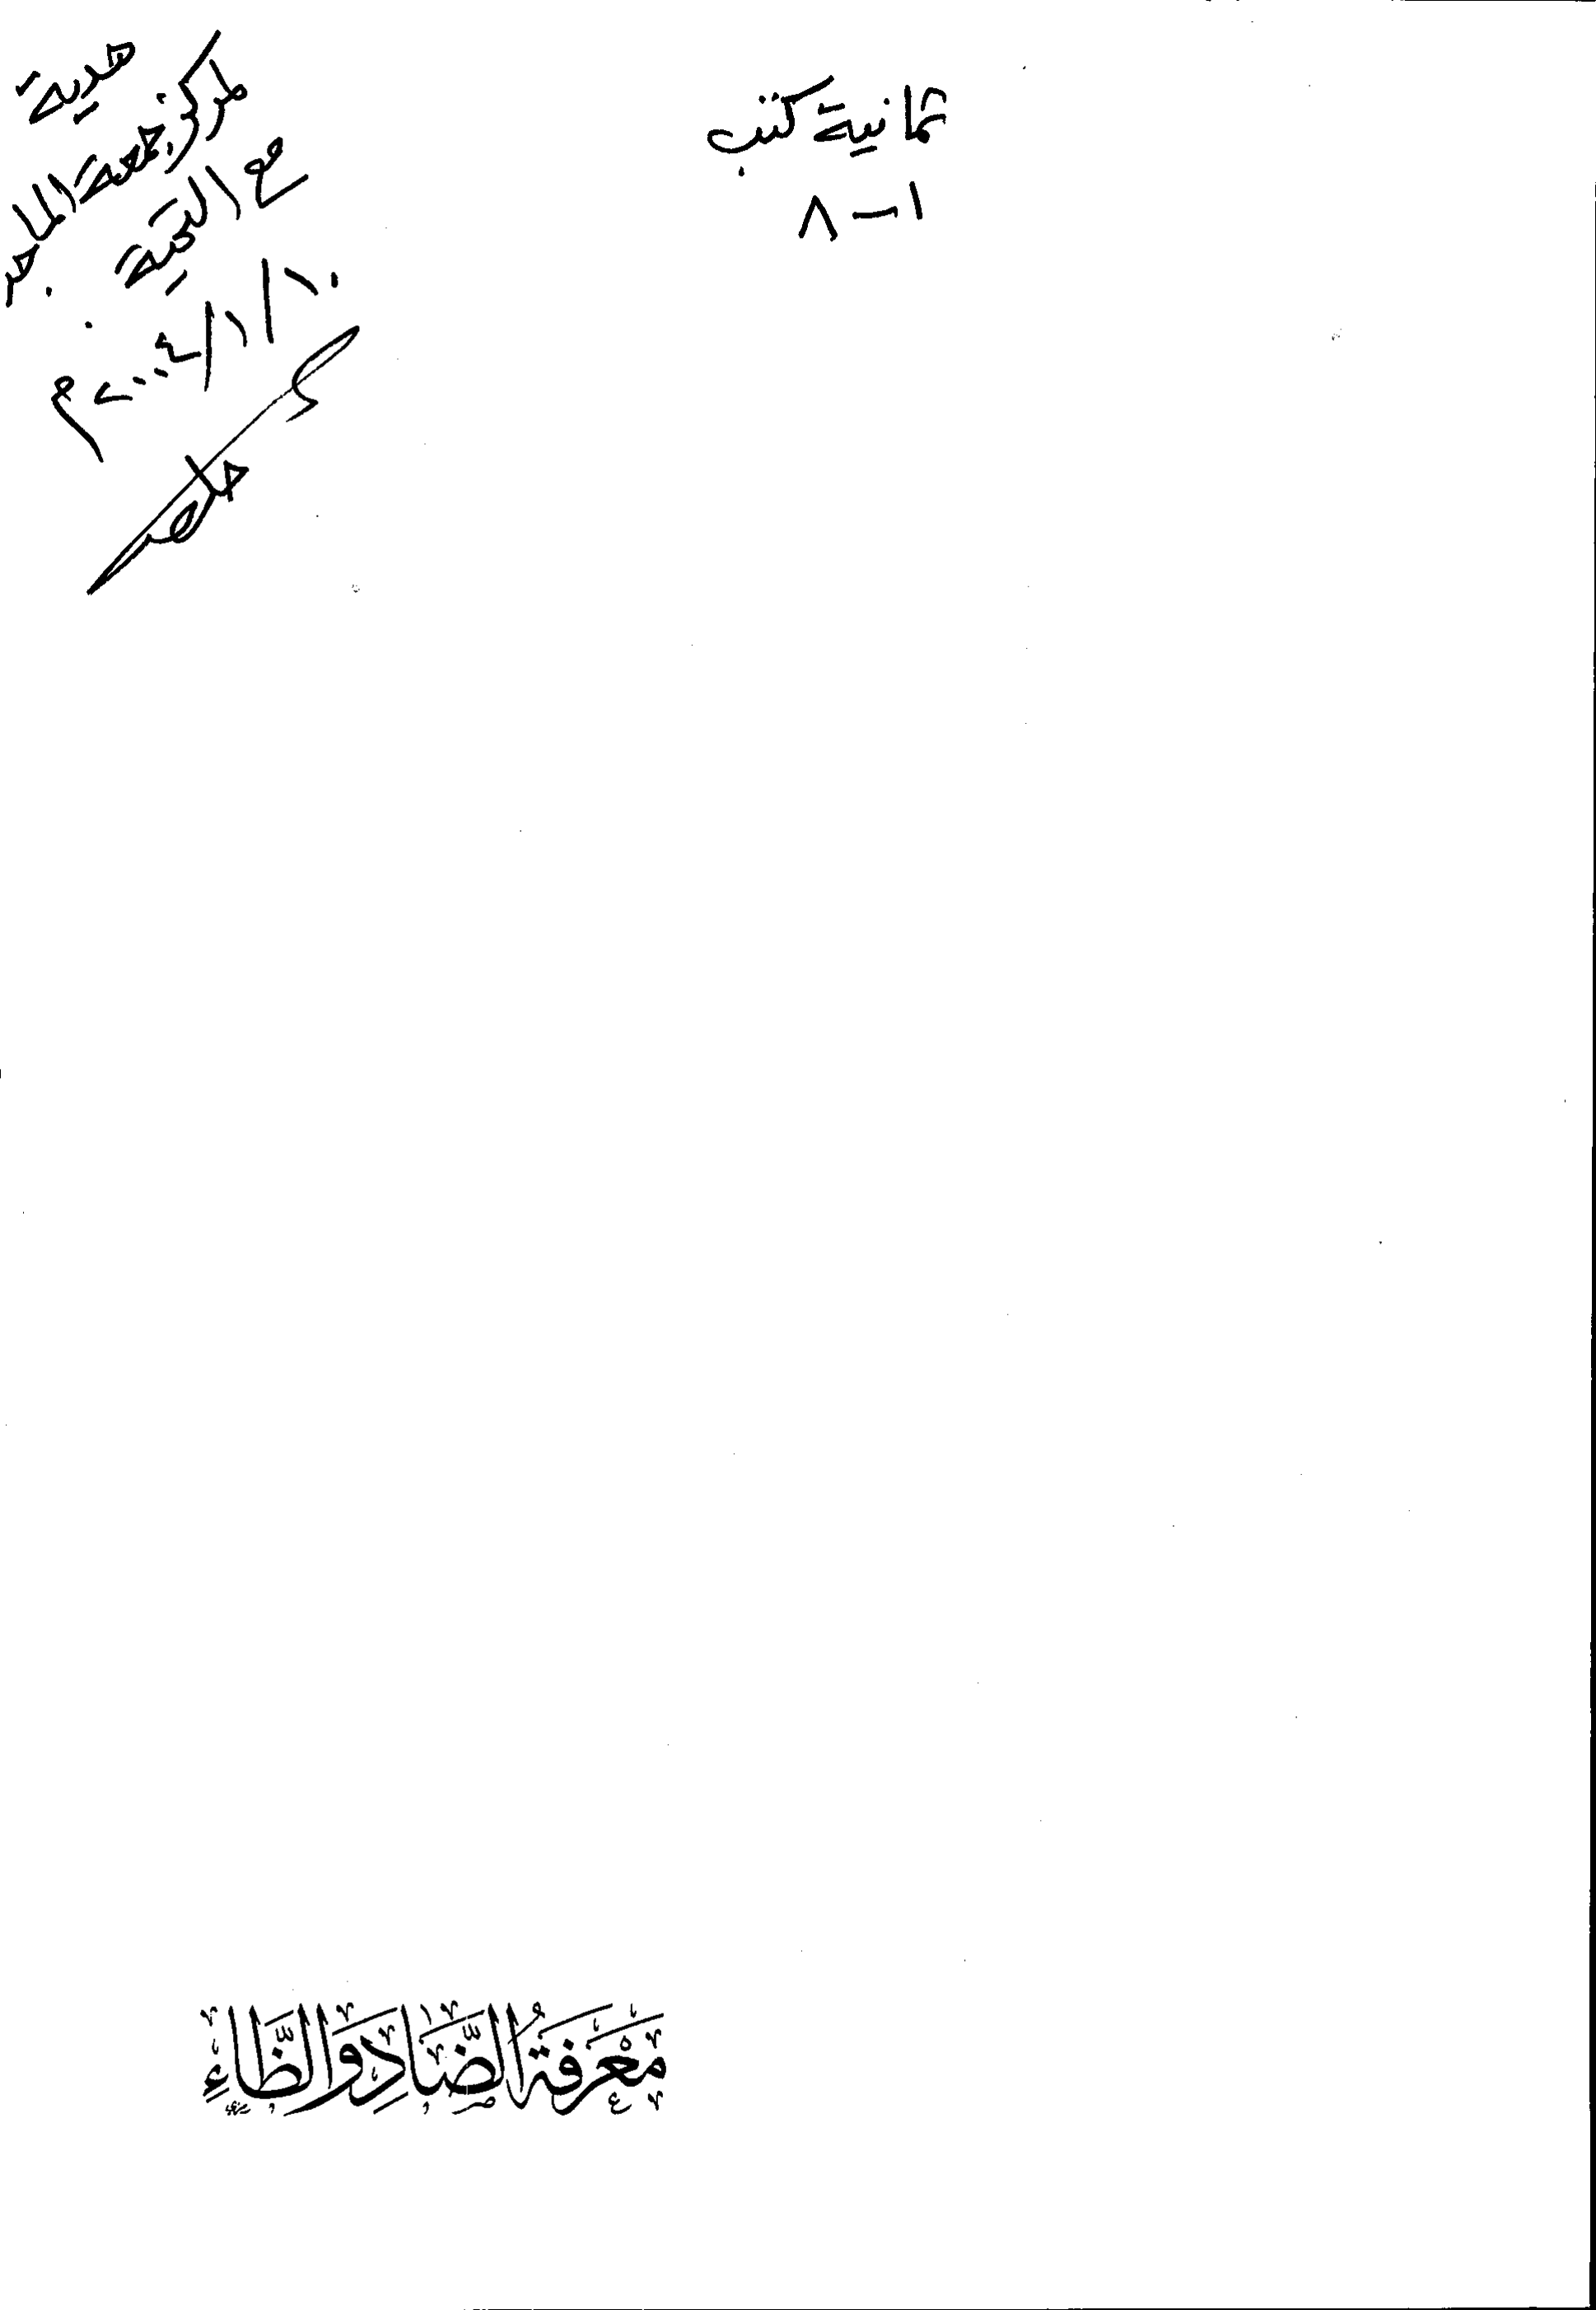 ثمانية كتب
١-٨
هدية
لمركز جمعة الماجد
مع التحية
١٠/١/٢٠٠٤م
مَعْرَفَةُ الضَّادِ وَالظَّاءِ